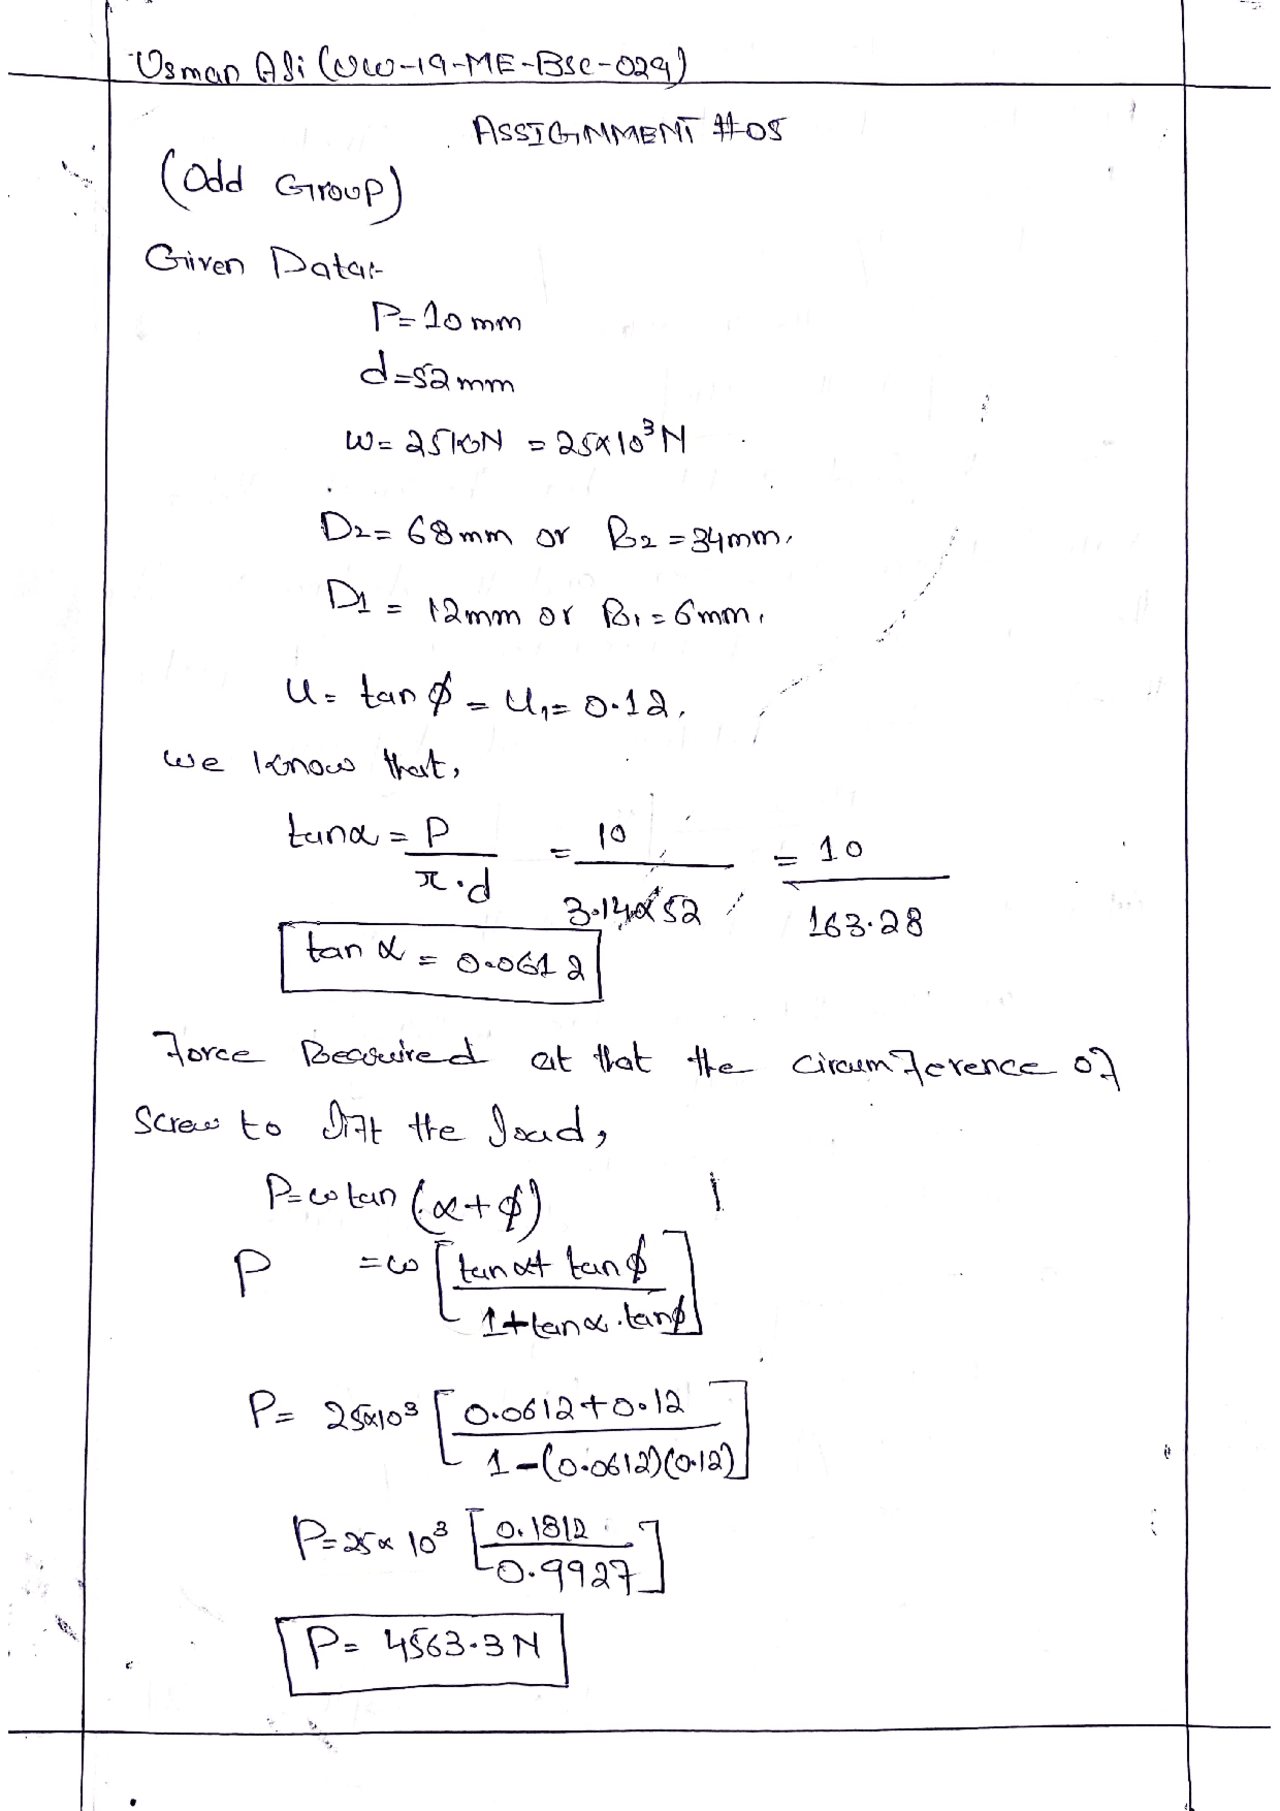 Usman Ali (UW-19-ME-BSc-029)
ASSIGNMENT #05
(Odd Group)
Given Data:-
P= 10 mm
d=52 mm
W= 25KN = 25×10³ N
D₂= 68 mm or R₂ = 34mm.
D₁ = 12mm or R₁ = 6mm.
u= tan ϕ = u₁= 0.12.
we know that,
tanα = P / π.d = 10 / 3.14×52 = 10 / 163.28
tan α = 0.0612
Force Required at that the circumference of
screw to lift the load,
P= w tan (α+ϕ)
P = w [tanα+ tanϕ / 1+tanα.tanϕ]
P= 25×10³ [0.0612+0.12 / 1-(0.0612)(0.12)]
P= 25× 10³ [0.1812 / 0.9927]
P= 4563.3 N